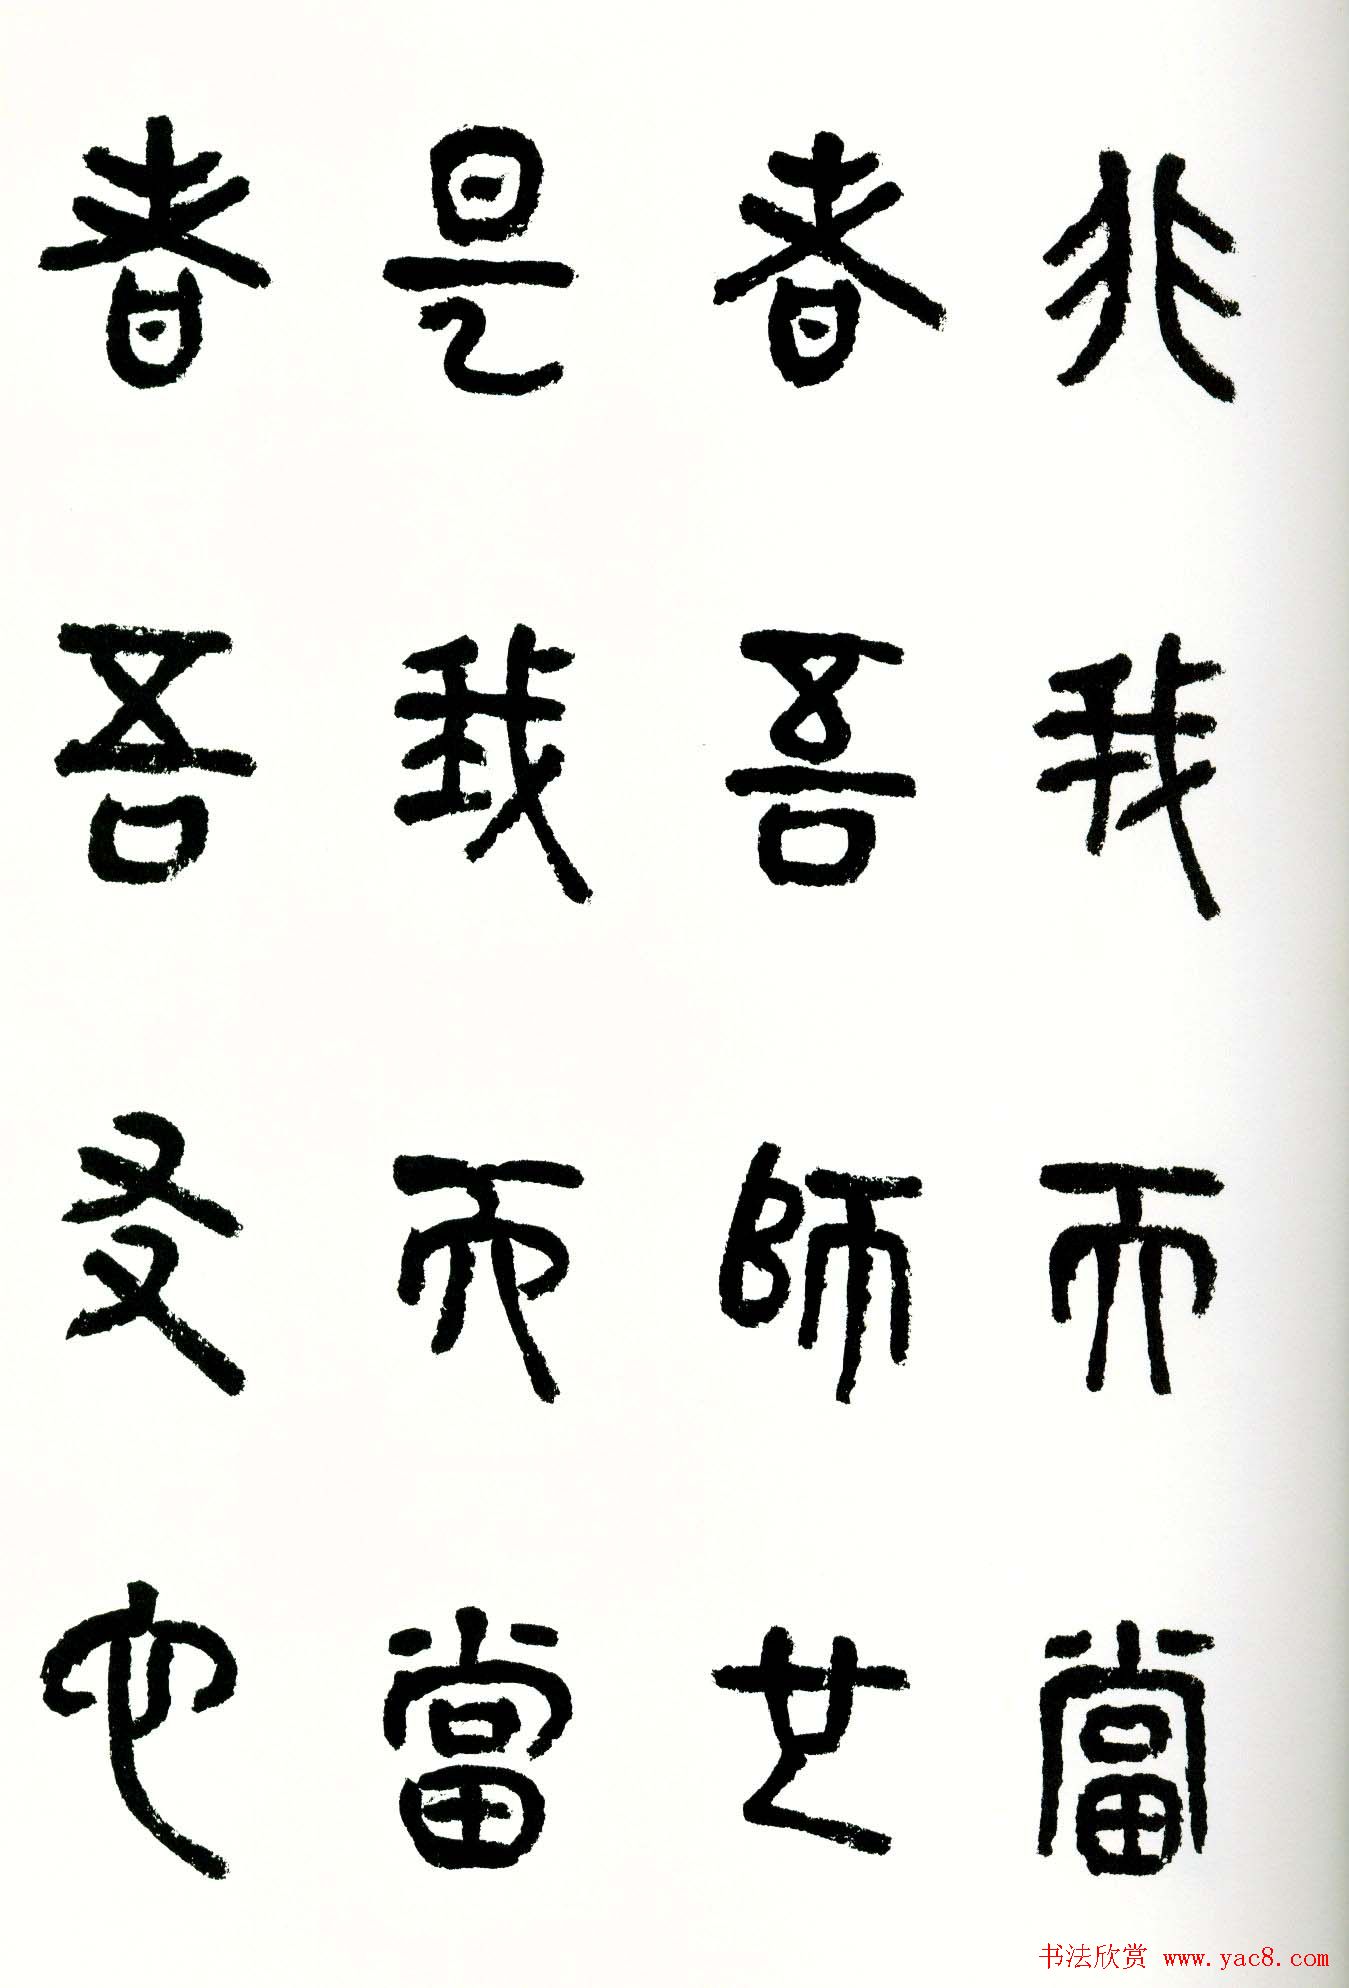 非我而當
者吾師也
是我而當
者吾友也
书法欣赏 www.yac8.com